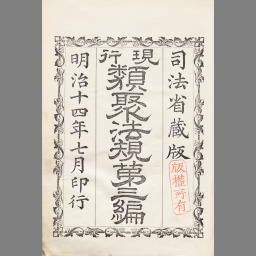 司法省蔵版
版權所有
現行
類聚法規第三編
明治十四年七月印行